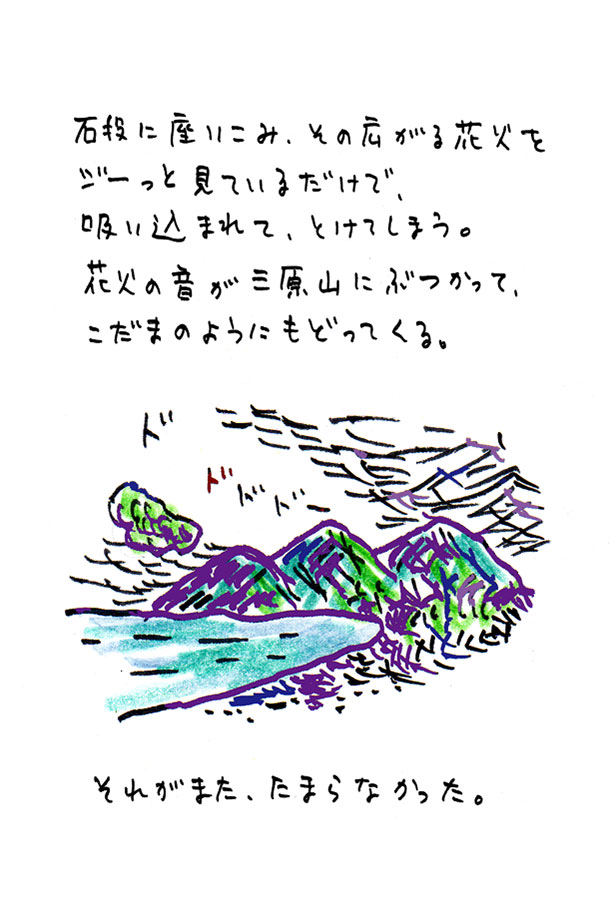 石段に座りこみ、その広がる花火を
ジーっと見ているだけで、
吸い込まれて、とけてしまう。
花火の音が三原山にぶつかって、
こだまのようにもどってくる。
ド
ドドドー
それがまた、たまらなかった。